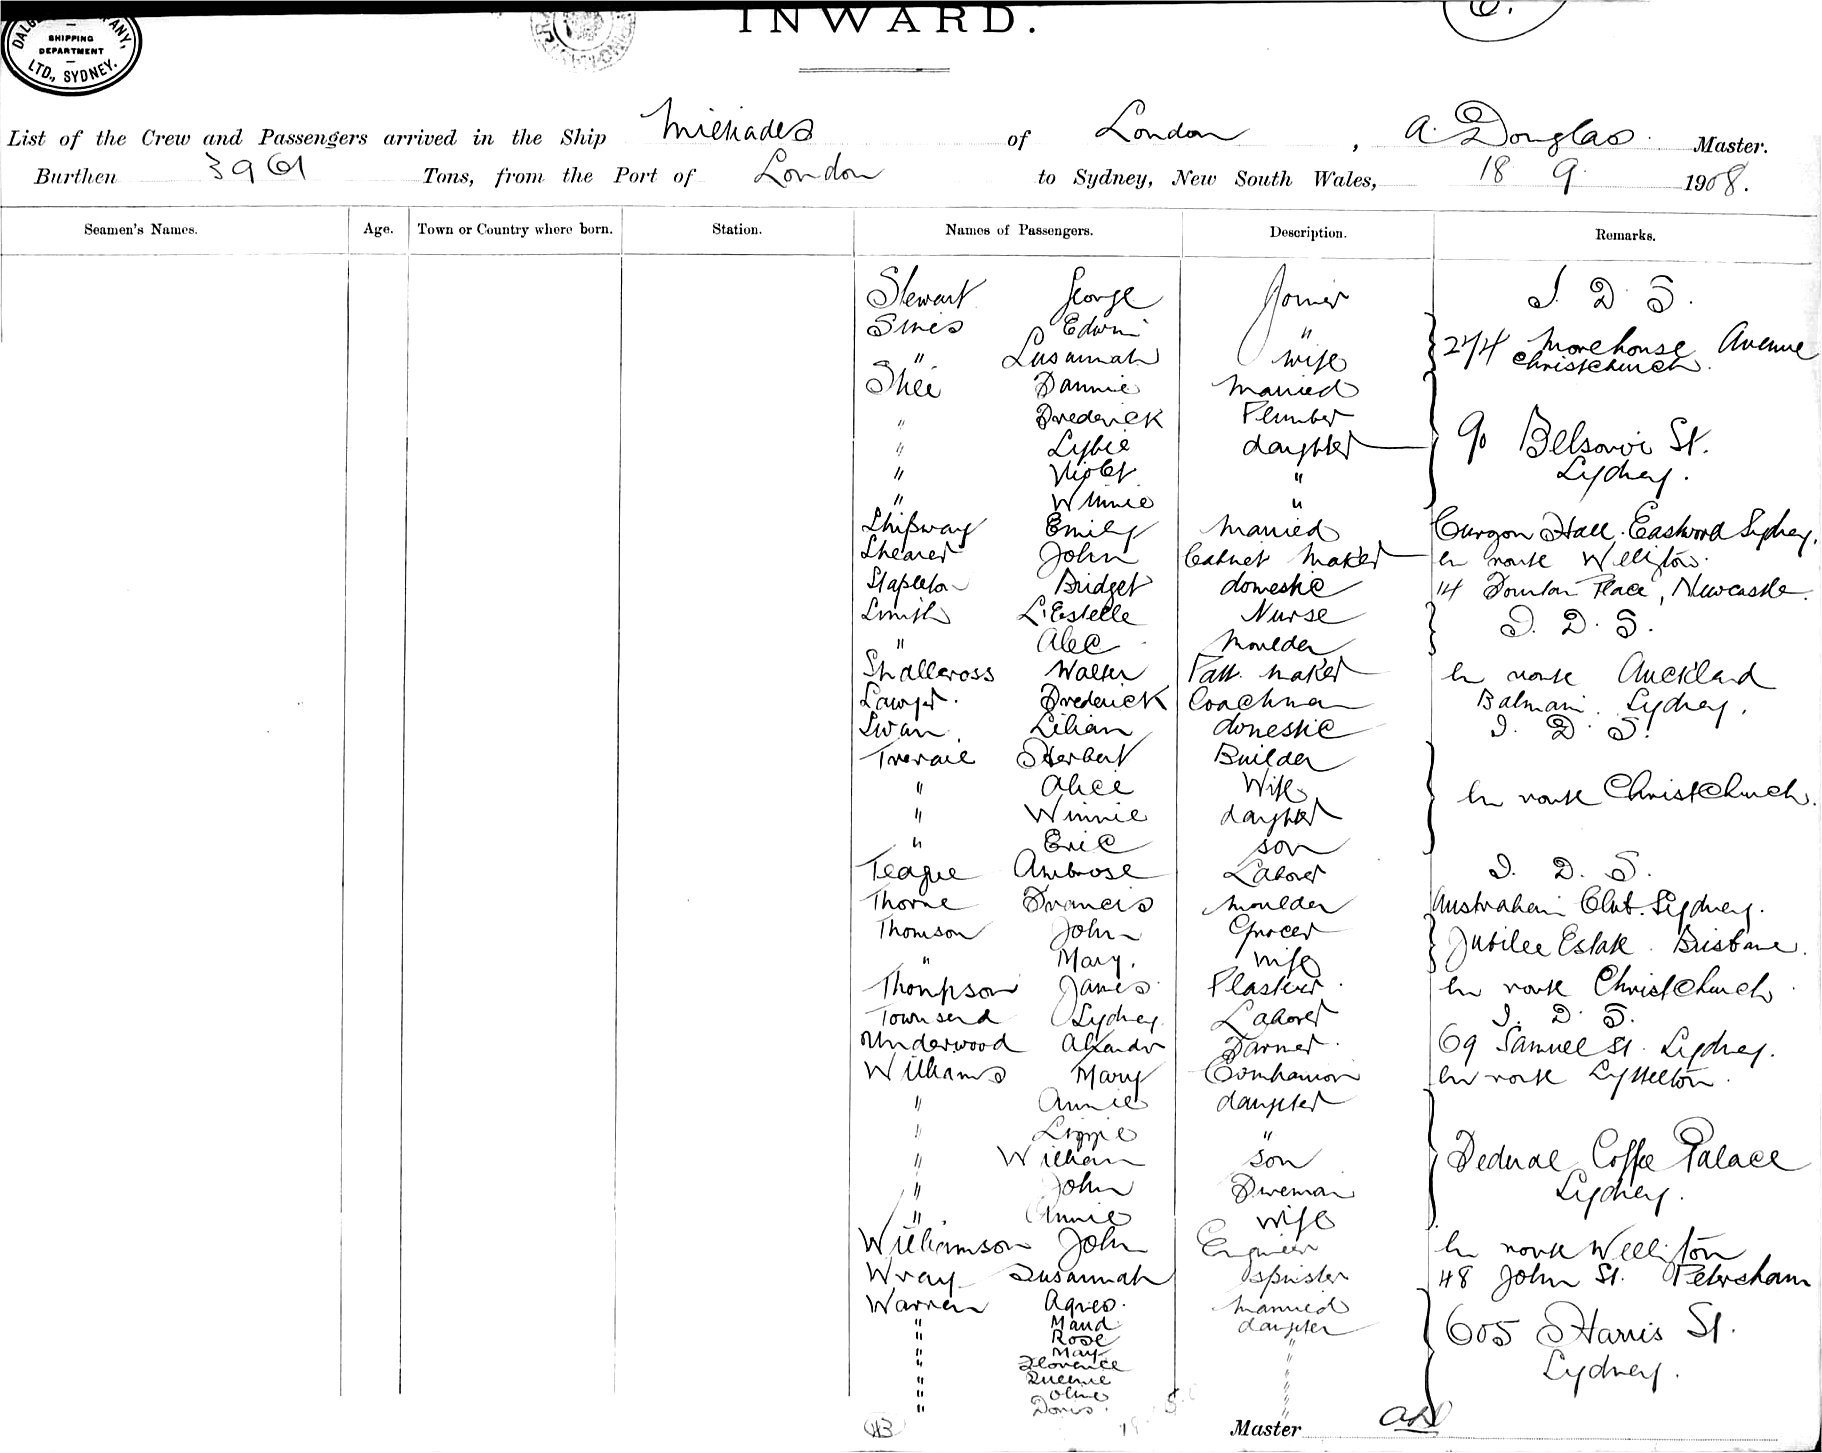 INWARD.
SHIPPING
DEPARTMENT
LTD., SYDNEY.
List of the Crew and Passengers arrived in the Ship Miltiades of London, A. Douglas Master.
Burthen 3961 Tons, from the Port of London to Sydney, New South Wales, 18 9 1908.
Seamen's Names. Age. Town or Country where born. Station. Names of Passengers. Description. Remarks.
Stewart George Joiner I. D. S.
Sines Edwin "
" Susannah wife 274 Morehouse Avenue Christchurch.
Shei Fannie Married
" Frederick Plumber
" Lybie daughter 90 St.
" Violet " Sydney.
" Winnie "
Shipway Emily Married Curzon Hall. Eastwood Sydney.
Shearer John Cabinet Maker En route Wellington.
Stapleton Bridget domestic 14 Place, Newcastle.
Smith L. Estelle Nurse I. D. S.
" Alec Moulder
Shallcross Walter Patt. maker En route Auckland
Sawyer. Frederick Coachman Balmain. Sydney.
Swan Lilian domestic I. D. S.
Trevail Herbert Builder
" Alice Wife En route Christchurch.
" Winnie daughter
" Eric son
Teague Ambrose Laborer I. D. S.
Thorne Francis Moulder Australian Club. Sydney.
Thomson John Grocer Jubilee Estate. Brisbane.
" Mary. wife
Thompson James Plasterer. En route Christchurch.
Townsend Sydney Laborer I. D. S.
Underwood Farmer. 69 Samuel St. Sydney.
Williams Mary Companion En route Lyttelton.
" Annie daughter
" Lizzie "
" William son Federal Coffee Palace
" John Fireman Sydney.
" Annie wife
Williamson John Engineer En route Wellington
Wray Susannah spinster 48 John St. Petersham
Warren Agnes. Married
" Maud daughter 605 Harris St.
" Rose "
" May "
" Florence " Sydney.
" Queenie "
" Olive "
" Doris. "
43
Master